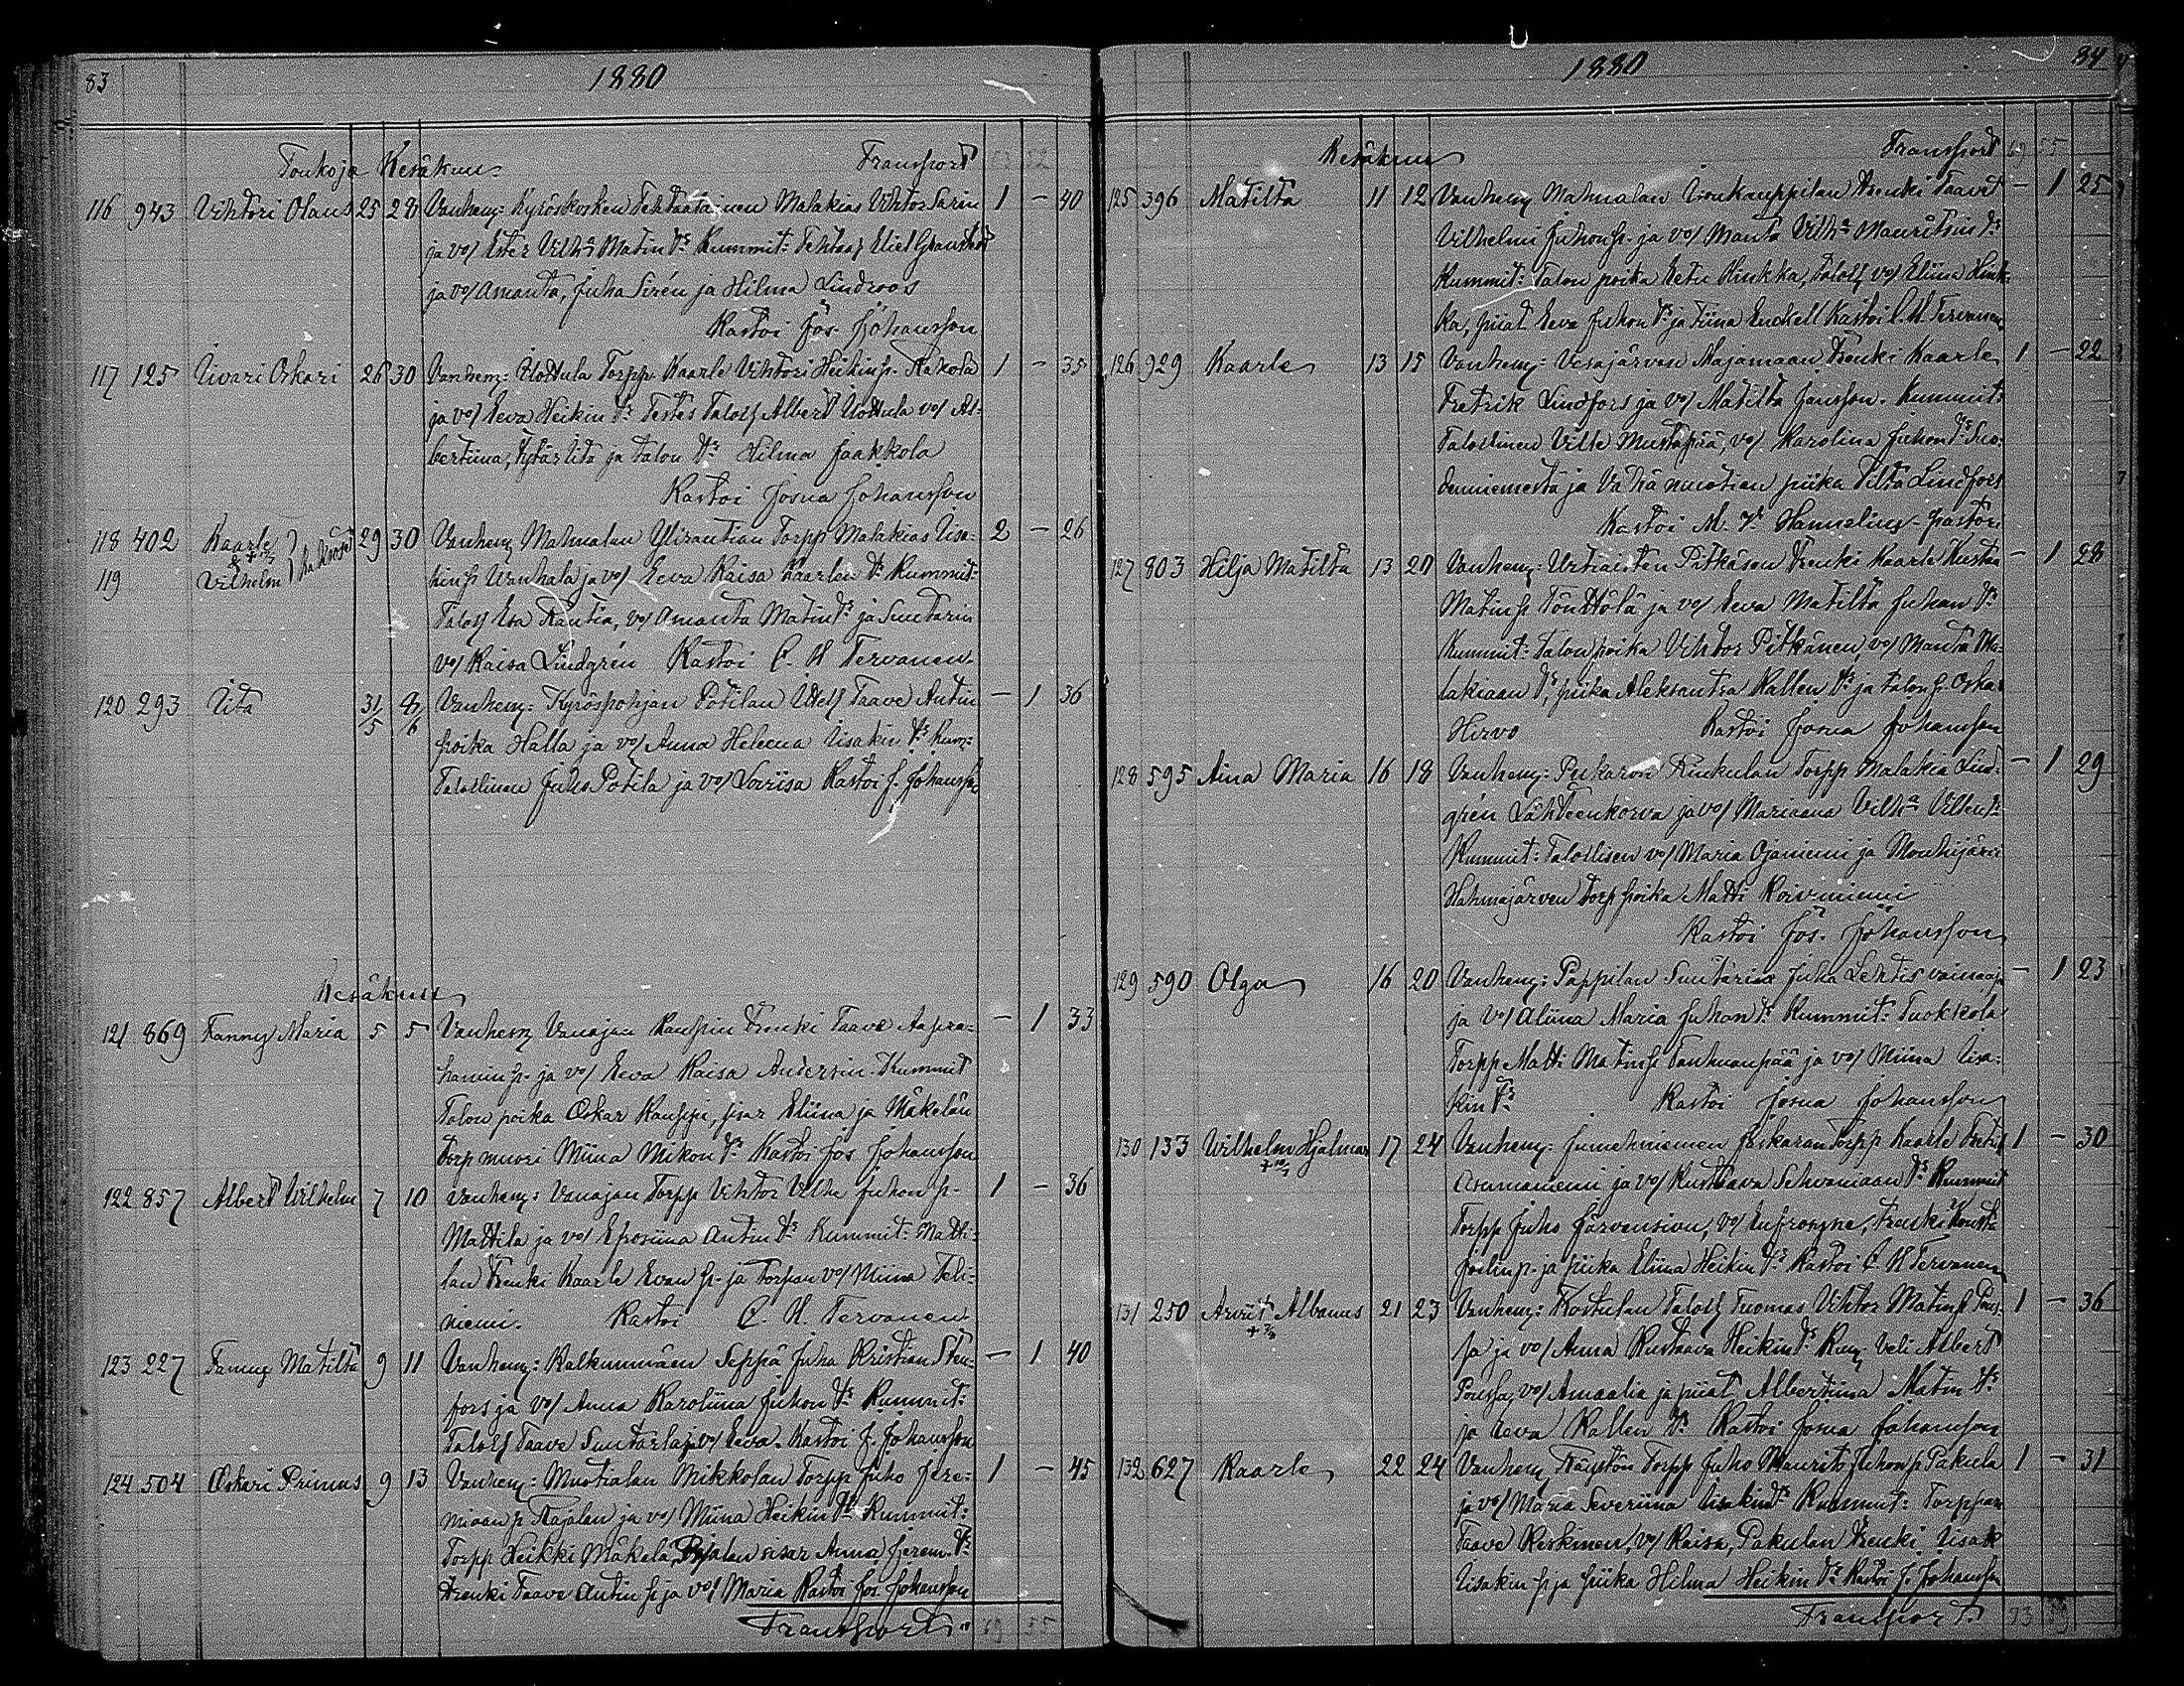 83
1880
Touko ja Kesäkuu
Transport 53 52
116 943 Vihtori Olaus 25 28 Vanhem: Kyröskosken Tehtaalainen Malakias Vihtor Saren 1 - 40
ja vo/ Ester Vilha Matin tr Kummit: Tehtaal Eliel
ja vo/ Amanta, Juha Sirén ja Hilma Lindroos
Kastoi Jos. Johansson
117 125 Iivari Oskari 26 30 Vanhem: Uottula Torpp. Kaarle Vihtori Heikin p. Kakola 1 - 35
ja vo/ Eeva Heikin tr Testes Talol Albert Uottula vo/ Al-
bertiina, Iita ja talon tr Hilma Jaakkola
Kastoi Josua Johansson
118 402 Kaarle 29 30 Vanhem Mahnalan Ylirantian Torpp Malakias Iisa- 2 - 26
119 Vilhelm kaksoset kin p Vanhala ja vo/ Eeva Kaisa Kaarlen tr Kummit:
Talol Esa Rantia, vo/ Amanta Matin tr ja Suutarin
vo/ Kaisa Lindgrén Kastoi C. H Tervanen.
120 293 Iita 31/5 8/6 Vanhem: Kyröspohjan Potilan Itsel Taave Antin - 1 36
poika Halla ja vo/ Anna Heleena Iisakin tr Kum:
Talollinen Juho Potila ja vo/ Loviisa Kastoi J. Johansson
Kesäkuu
121 869 Fanny Maria 5 5 Vanhem Vanajan Kauppin Trenki Taave Aapra- - 1 33
hamin p. ja vo/ Eeva Kaisa Andersin. Kummit
Talon poika Oskar Kauppi, sisar Eliina ja Mäkelän
Torp muori Miina Mikon tr Kastoi Jos Johansson
122 857 Albert Vilhelm 7 10 Vanhem: Vanajan Torpp Vihtor Vilha Juhon p. 1 - 36
Mattila ja vo/ Efrosiina Antin tr Kummit: Matti-
lan Trenki Kaarle Evan p. ja Torpan vo/ Miina Teli-
niemi. Kastoi C. H. Tervanen
123 227 Fanny Matilta 9 11 Vanhem: Kalkunmäen Seppä Juha Kristian Sten- - 1 40
fors ja vo/ Anna Karoliina Juhon tr Kummit:
Talol Taave Suutarla ja vo/ Eeva. Kastoi J. Johansson
124 504 Oskari Primus 9 13 Vanhem: Mustialan Mikkolan Torpp Juho Jere- 1 - 45
miaan p Rajalan ja vo/ Miina Heikin tr Kummit:
Torpp Heikki Mäkelä, Rajalan sisar Anna Jerem. tr
Trenki Taave Antin p ja vo/ Maria Kastoi Jos Johansson
Transport 69 55
1880
84
Kesäkuu
Transport 69 55
125 396 Matilta 11 12 Vanhem Mahnalan Trenki Taavet - 1 25
Vilhelmi Juhon p. ja vo/ Manta Vilha Mauritsin tr
Kummit: Talon poika Eetu Hinkka, Talol vo/ Eliina Hink-
ka, piiat Eeva Juhon tr ja Tiina Enckell Kastoi C. H. Tervanen
126 929 Kaarle 13 15 Vanhem: Vesajärven Majamaan Trenki Kaarle 1 - 22
Fretrik Lindfors ja vo/ Matilta Jansson. Kummit:
Talollinen Ville Mustapää, vo/ Karolina Juhon tr Suo-
denniemestä ja Vähä nuotian piika Tilta Lindfors
Kastoi M. Hannelius pastori
127 803 Hilja Matilta 13 20 Vanhem: Urtiaisten Pitkäsen Trenki Kaarle Kustaa - 1 28
Matin p Tönttölä ja vo/ Eeva Matilta Juhan tr
Kummit: Talon poika Vihtor Pitkänen, vo/ Manta Ma-
lakiaan tr, piika Aleksantra Kallen tr ja talon p. Oskar
Hirvo Kastoi Josua Johansson
128 595 Aina Maria 16 18 Vanhem: Torpp Malakia Lind- - 1 29
grén Lähteenkorva ja vo/ Mariaana Vilha Villen tr
Kummit: Talollisen vo/ Maria Ojaniemi ja Mouhijärvi
Hahmajärven Torp poika Matti Koivuniemi
Kastoi Jos. Johansson
129 590 Olga 16 20 Vanhem: Pappilan Suutarin Juha Lehtis vainaaja - 1 23
ja Vo/ Aliina Maria Juhan tr Kummit: Tuokkola
Torpp Matti Matin p Tanhuanpää ja vo/ Miina Iisa-
kin tr Kastoi Josua Johansson
130 133 Wilhelm Hjalmar 17 24 Vanhem: Jumehniemen Torpp Kaarle Fretr 1 - 30
Asunamiemi ja vo/ Kustaava Sehvaniaan tr Kummit
Torpp Juho Järvensivu, vo/ Eufrosyne, Trenki Kustaa
Joelin p. ja piika Eliina Heikin tr Kastoi C. H Tervanen
131 250 Arviit Albanus 21 23 Vanhem: Kostulan Talol Tuomas Vihtor Matin p Pous- 1 - 36
sa ja vo/ Anna Kustaava Heikin tr Kum. Veli Albert
Poussa, vo/ Amaalia ja piiat Albertiina Matin tr
ja Eeva Kallen tr Kastoi Josua Johansson
132 627 Kaarle 22 24 Vanhem Torpp Juho Maurits Juhon p Pakula 1 - 31
ja vo/ Maria Severiina Iisakin tr Kummit: Torppari
Taave Keskinen, vo/ Kaisa, Pakulan Trenki Iisak
Iisakin p ja piika Hilma Heikin tr Kastoi J. Johansson
Transport. 73 59